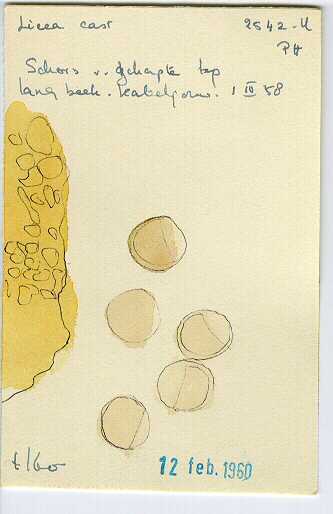 Licea cast
2542-U
PH
Schors v. gekapte top
lang beek. Kabeljouw. 1 IV 58
12 feb. 1960